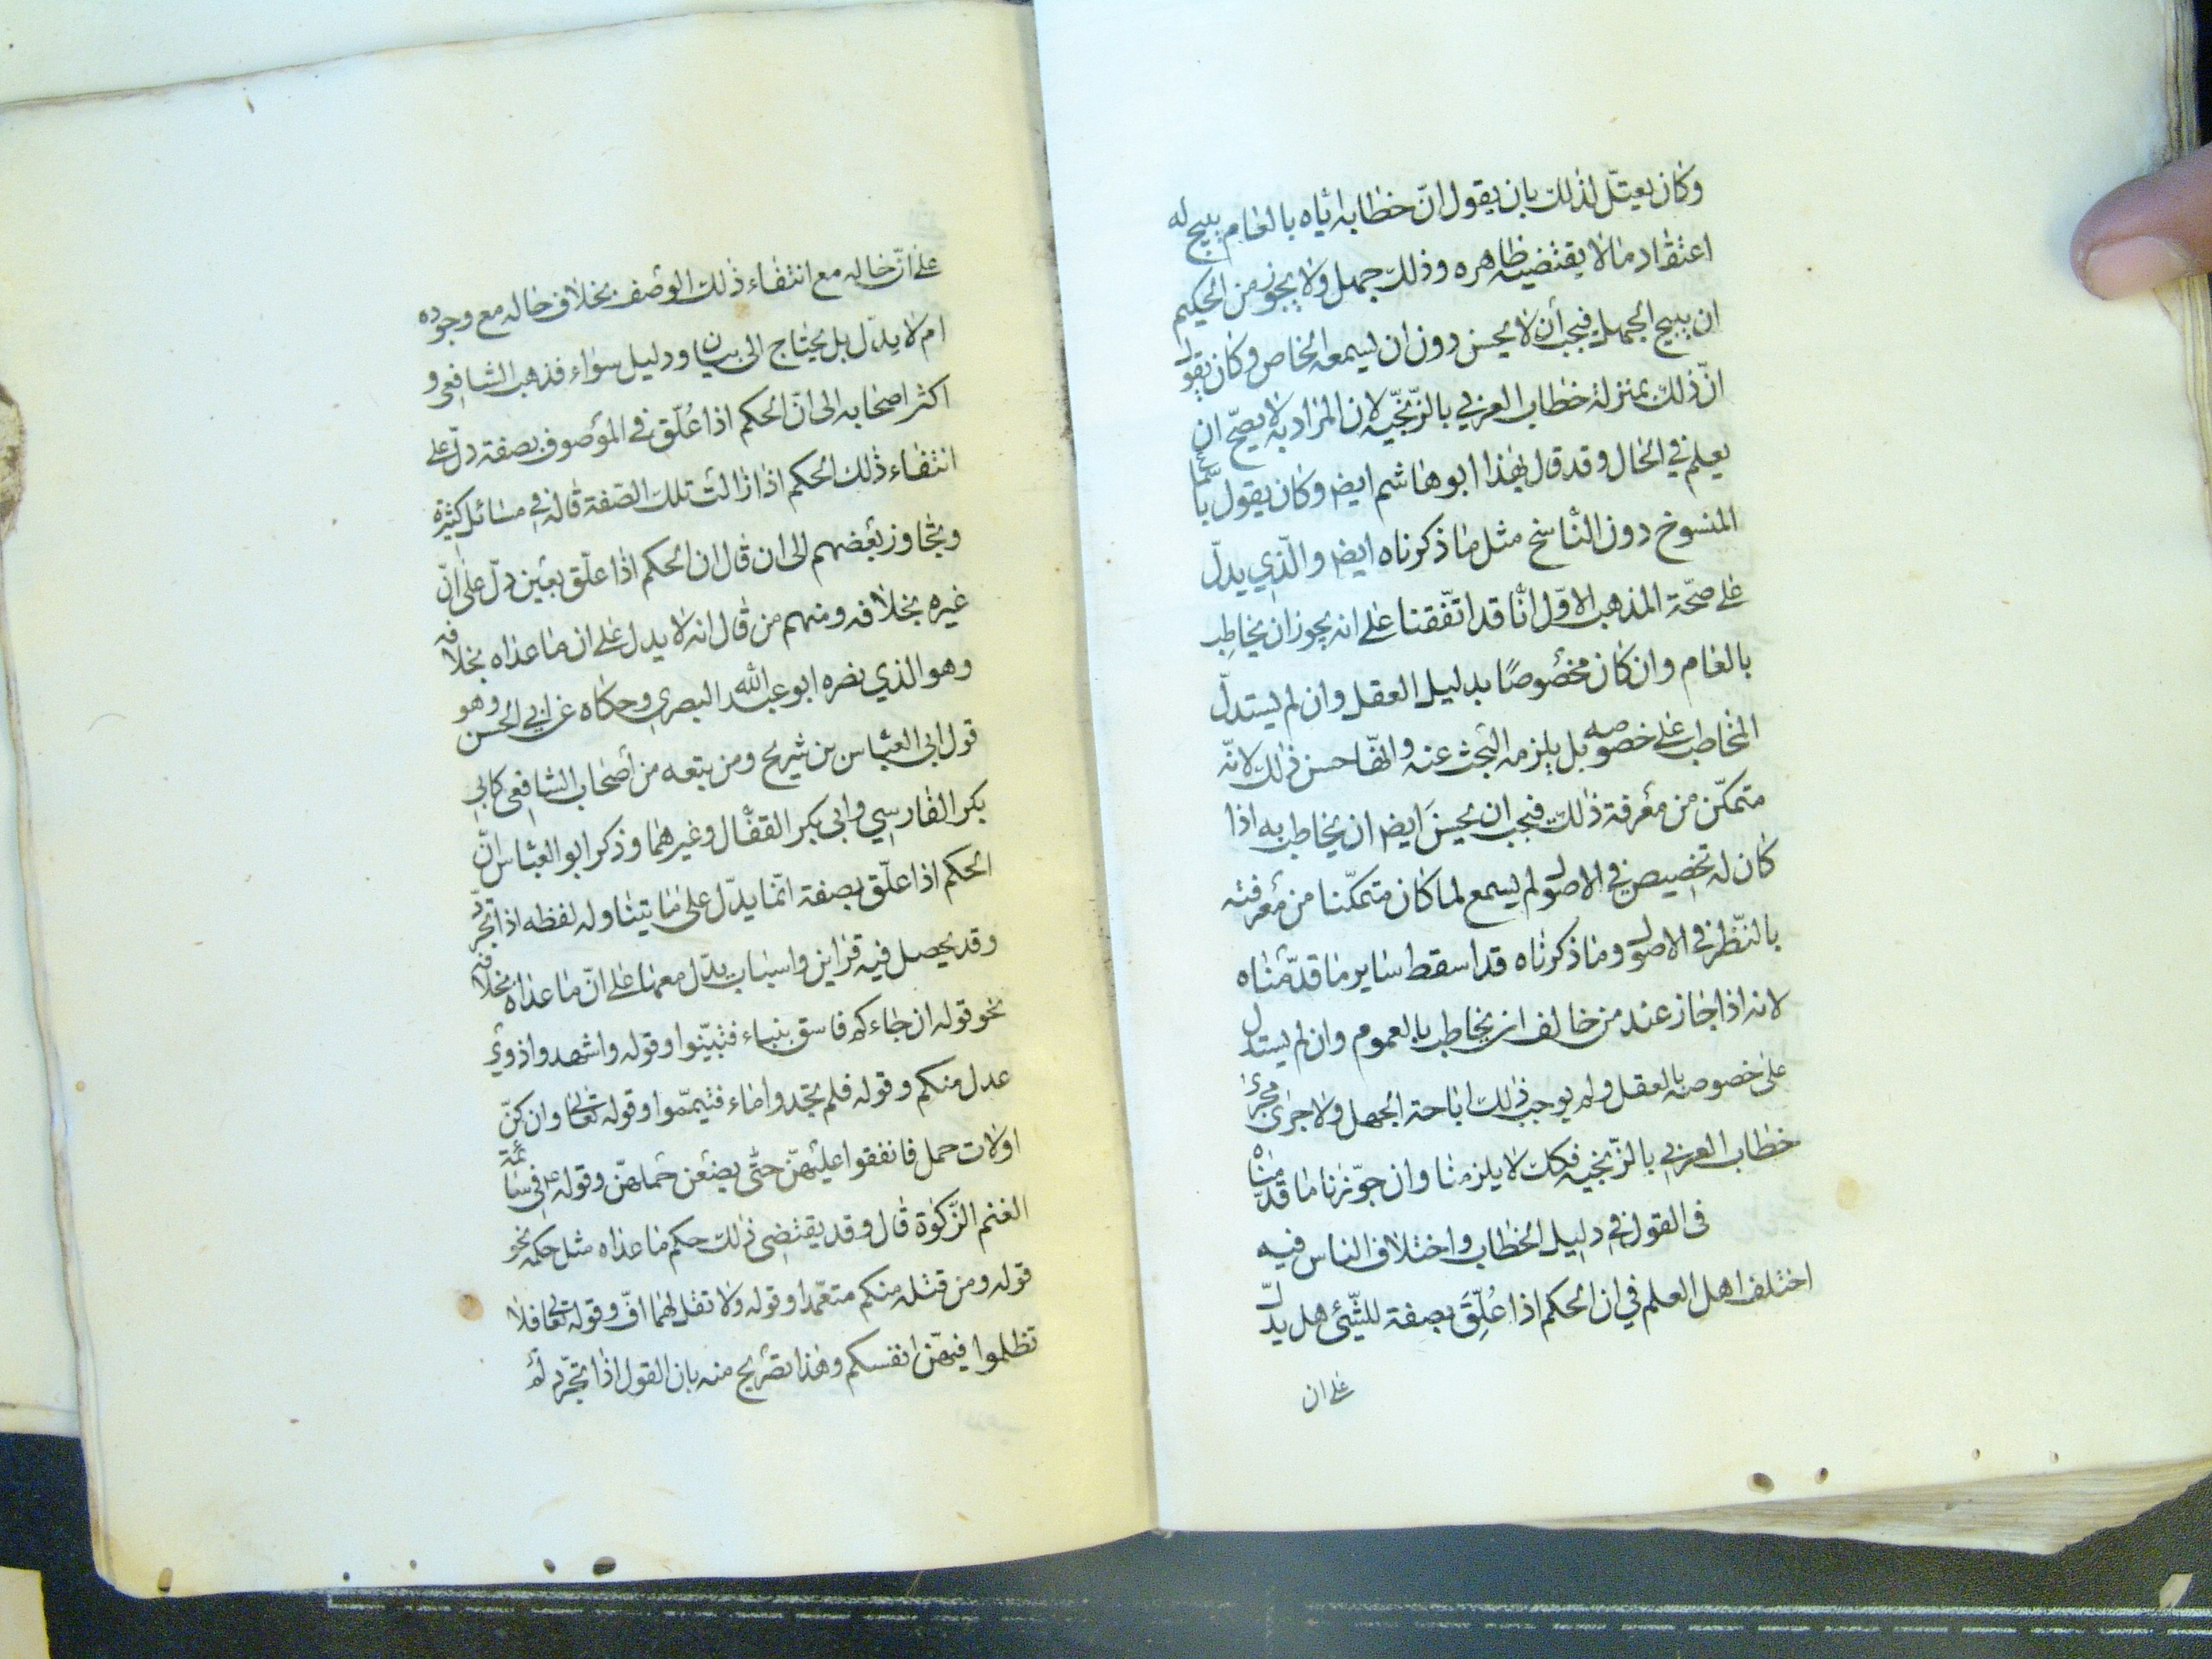 وكان يعتلّ لذلك بان يقول انّ خطابه ايّاه بالعام يبيح له
اعتقاد ما لا يقتضيه ظاهره وذلك جهل ولا يجوز من الحكيم
ان يبيح الجهل فيجب أن لا يحسن دون ان يسمعه الخاص وكان يقول
انّ ذلك بمنزلة خطاب العربي بالزّنجيّه لان المراد به لا يصحّ ان
يعلم في الحال وقد قال بهذا ابو هاشم ايض وكان يقول
المنسوخ دون النّاسخ مثل ما ذكرناه ايض والّذي يدلّ
على صحّة المذهب الاوّل انّا قد اتّفقنا على انه يجوز ان يخاطب
بالعام وان كان مخصوصًا بدليل العقل وان لم يستدلّ
المخاطب على خصوصه بل يلزمه البحث عنه وانّما حسن ذلك لانّه
متمكّن من معرفة ذلك فيجب ان يحسن ايض ان يخاطب به اذا
كان له تخصيص في الاصول لم يسمع لما كان متمكّنا من معرفته
بالنّظر في الاصول وما ذكرناه قد اسقط ساير ما قدّمناه
لانه اذا جاز عند من خالف ان يخاطب بالعموم وان لم يستدل
على خصوصه بالعقل ولم يوجب ذلك اباحة الجهل ولا جرى مجرى
خطاب العربي بالزّنجيه فكك لا يلزمنا وان جوّزنا ما قدّمناه
فى القول في دليل الخطاب واختلاف الناس فيه
اختلف اهل العلم في ان الحكم اذا عُلِّقَ بصفة للشّيئ هل يدلّ
على ان
على انّ حاله مع انتفاء ذلك الوصف بخلاف حاله مع وجوده
ام لا يدلّ بل يحتاج الى بيان ودليل سواء فذهب الشافعي و
اكثر اصحابه الى انّ الحكم اذا عُلّق في الموصوف بصفة دلّ على
انتفاء ذلك الحكم اذا زالت تلك الصّفة قاله في مسائل كثيرة
وتجاوز بعضهم الى ان قال ان الحكم اذا علّق بعين دلّ على انّ
غيره بخلافه ومنهم من قال انه لا يدل على ان ما عداه بخلافه
وهو الذي نصره ابو عبد الله البصري وحكاه عن ابي الحسن وهو
قول ابى العبّاس بن شريح ومن يتبعه من أصحاب الشافعي كابي
بكر الفارسي وابى بكر القفّال وغيرهما وذكر ابو العبّاس انّ
الحكم اذا علّق بصفة انّما يدلّ على ما يتناوله لفظه اذا تجرّد
وقد يحصل فيه قراين واسباب يدلّ معها على انّ ما عداه بخلافه
نحو قوله ان جاءكم فاسق بنباء فتبيّنوا وقوله واشهدوا ذوي
عدل منكم وقوله فلم تجدوا ماء فتيمّموا وقوله تعالى وان كنّ
اولات حمل فانفقوا عليهنّ حتّى يضعن حملهنّ وقوله ع في سائمة
الغنم الزّكوة قال وقد يقتضى ذلك حكم ما عداه مثل حكمه نحو
قوله ومن قتله منكم متعمّدا وقوله ولا تقل لهما افّ وقوله تعالى فلا
تظلموا فيهنّ انفسكم وهذا تصريح منه بان القول اذا تجرّد لم